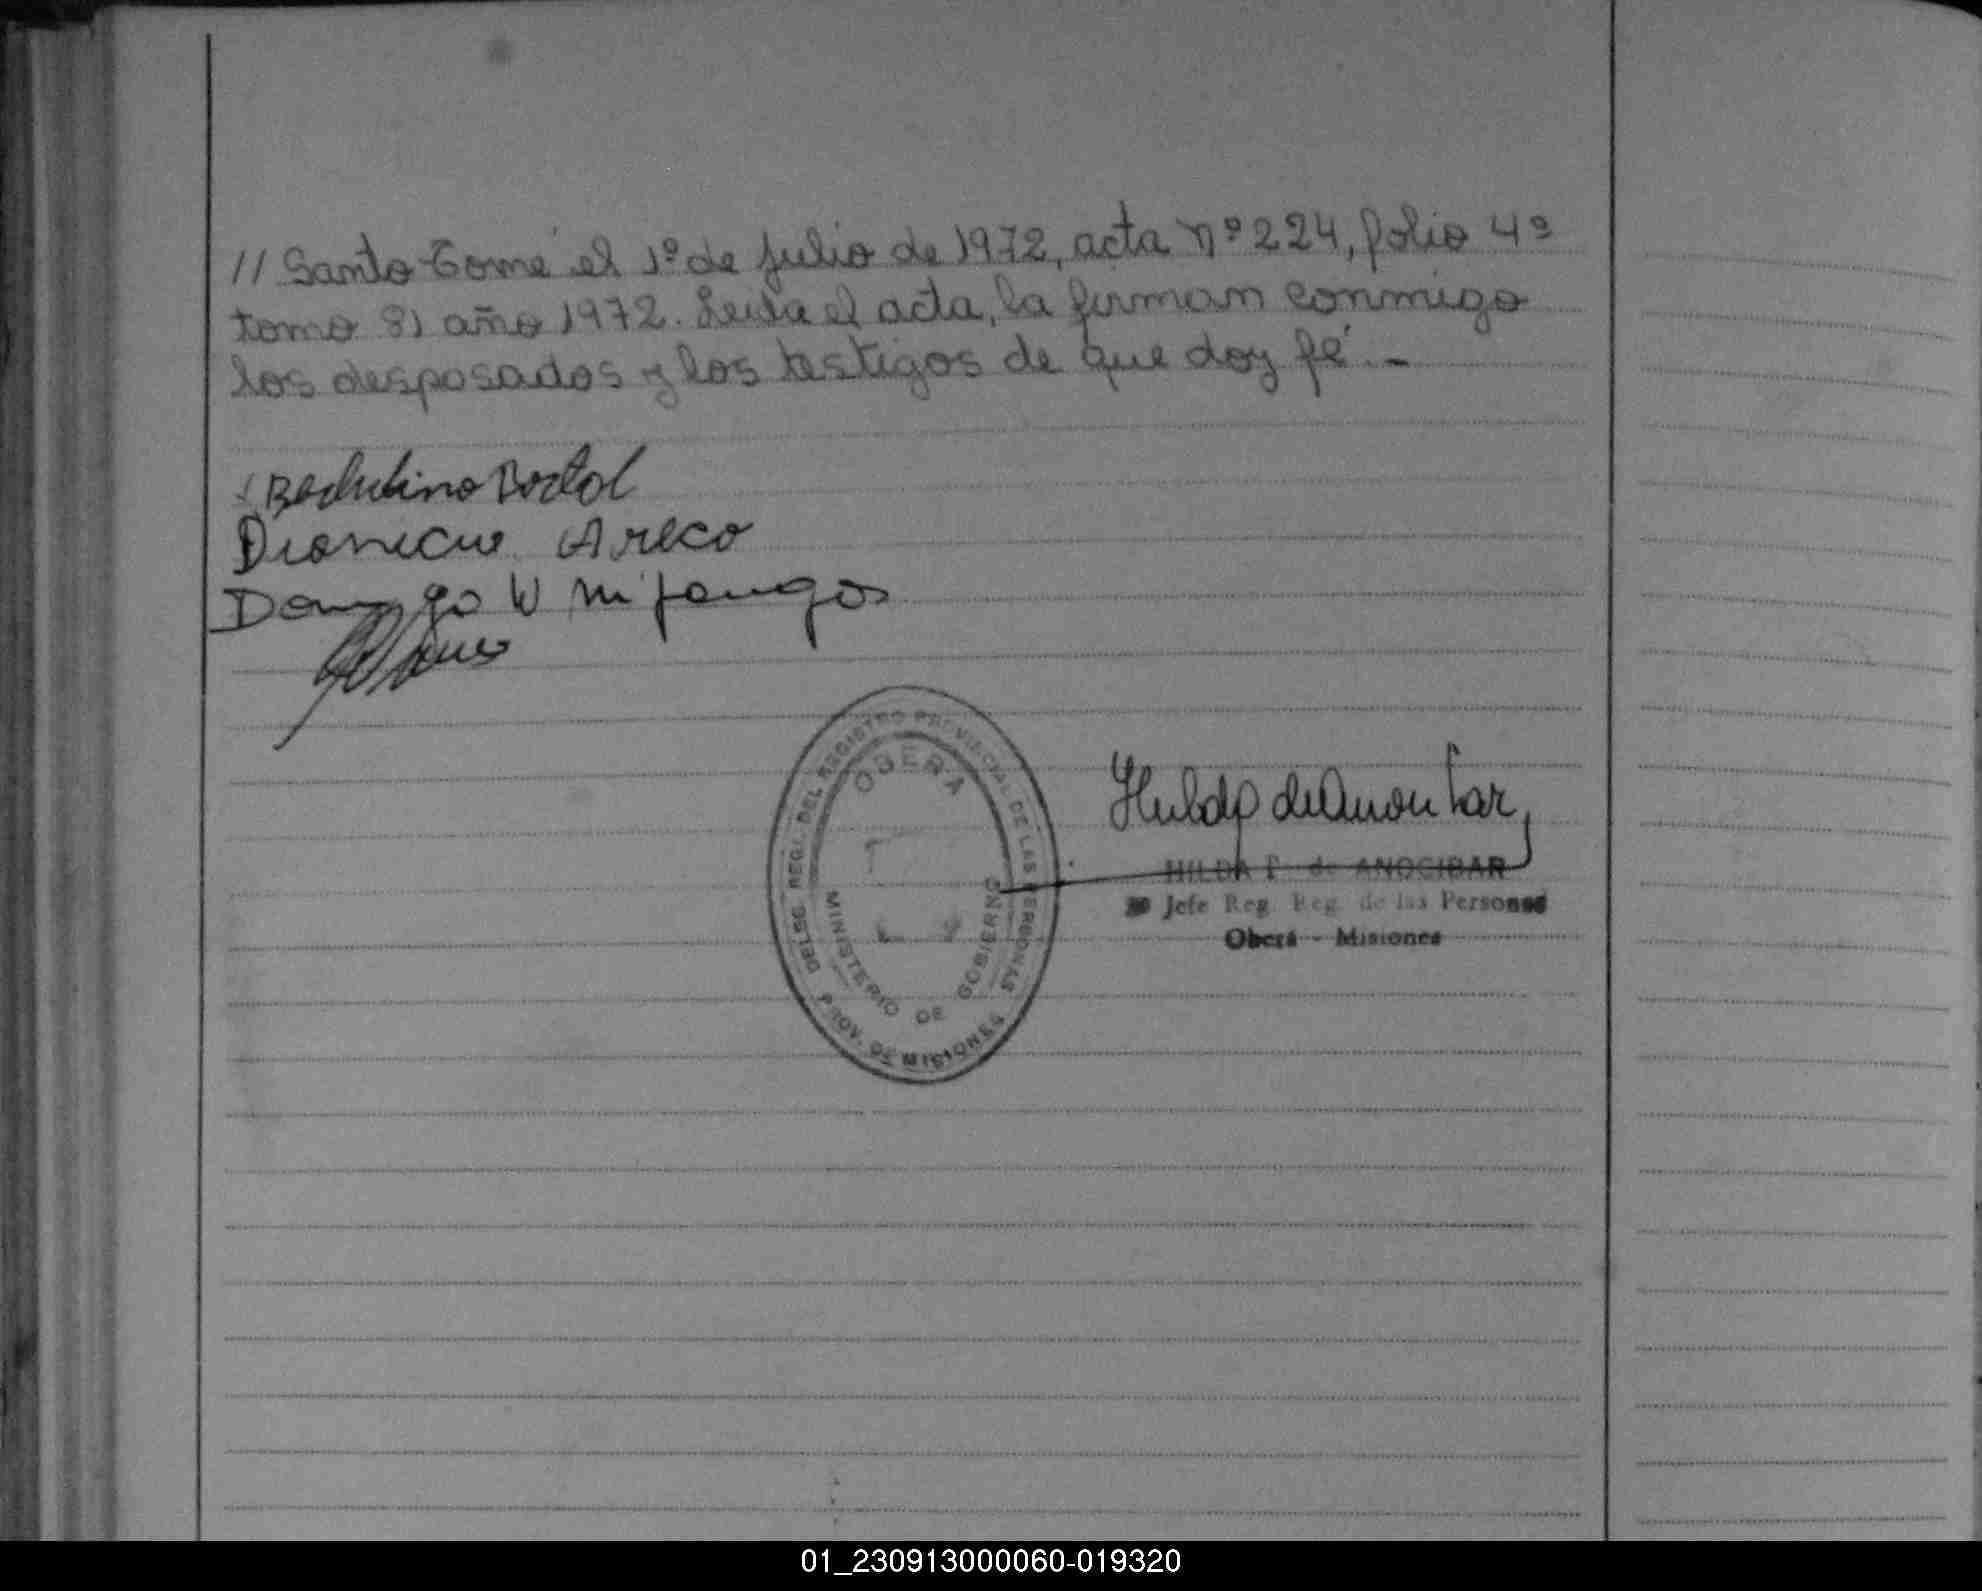 // Santo Tomé el 1º de julio de 1972, acta Nº 224, folio 4º
tomo 81 año 1972. Leida el acta, la firman conmigo
los desposados y los testigos de que doy fé.-
Dionicio Areco
Domingo W Mijangos
DELEG. REG. DEL REGISTRO PROVINCIAL DE LAS PERSONAS
OBERA
MINISTERIO DE GOBIERNO
PROV. DE MISIONES
HILDA F. de ANOCIBAR
Jefe Reg. Reg. de las Personas
Oberá - Misiones
01_230913000060-019320